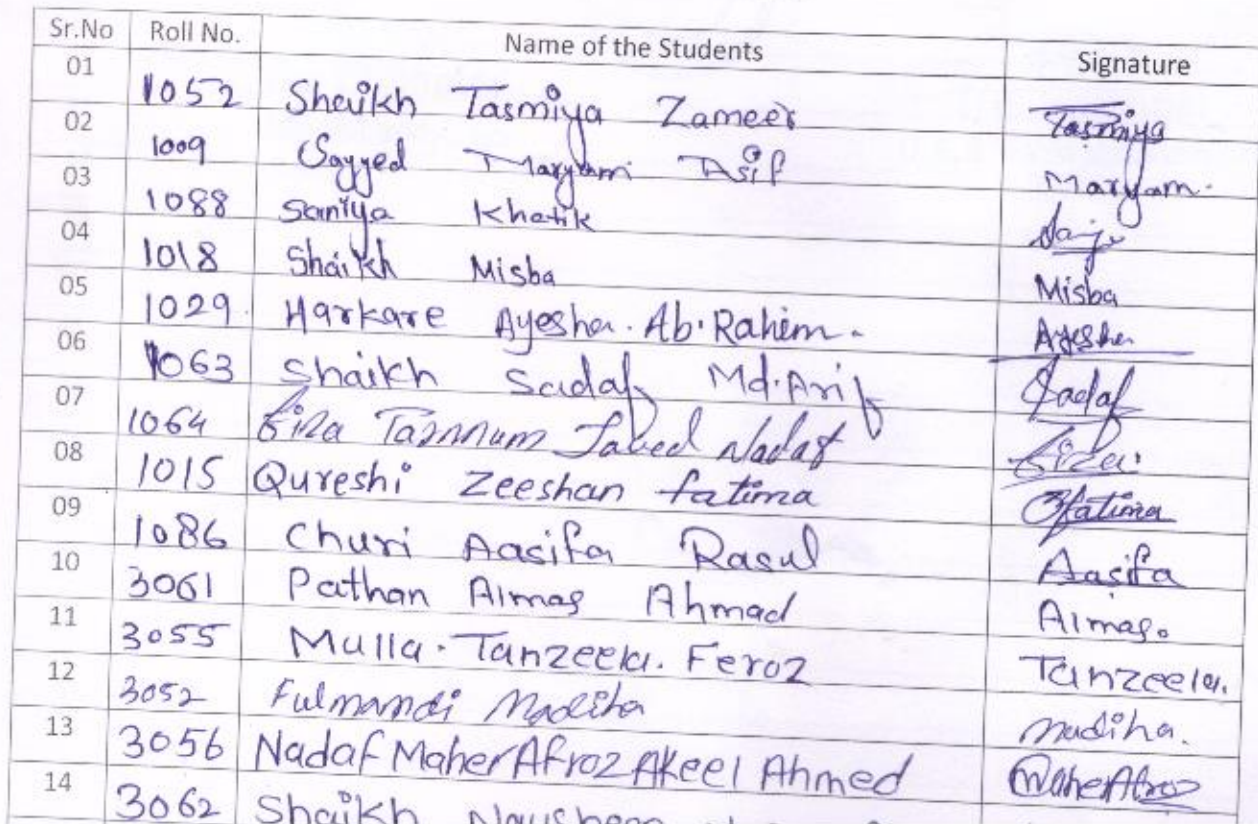 Sr.No Roll No. Name of the Students Signature
01 1052 Shaikh Tasmiya Zameer Tasmiya
02 1009 Sayyed Maryam Asif Maryam.
03 1088 Saniya Khatik
04 1018 Shaikh Misba Misba
05 1029. Harkare Ayesha. Ab. Rahim. Ayesha
06 1063 Shaikh Sadaf Md. Arif Sadaf
07 1064 Fiza Javed Nadaf Fiza.
08 1015 Qureshi Zeeshan fatima Zfatima
09 1086 Churi Aasifa Rasul Aasifa
10 3061 Pathan Almas Ahmad Almas.
11 3055 Mulla. Tanzeela. Feroz Tanzeela.
12 3052 Fulmamdi Madiha madiha.
13 3056 Nadaf Maher Afroz Akeel Ahmed Maher Afroz
14 3062 Shaikh